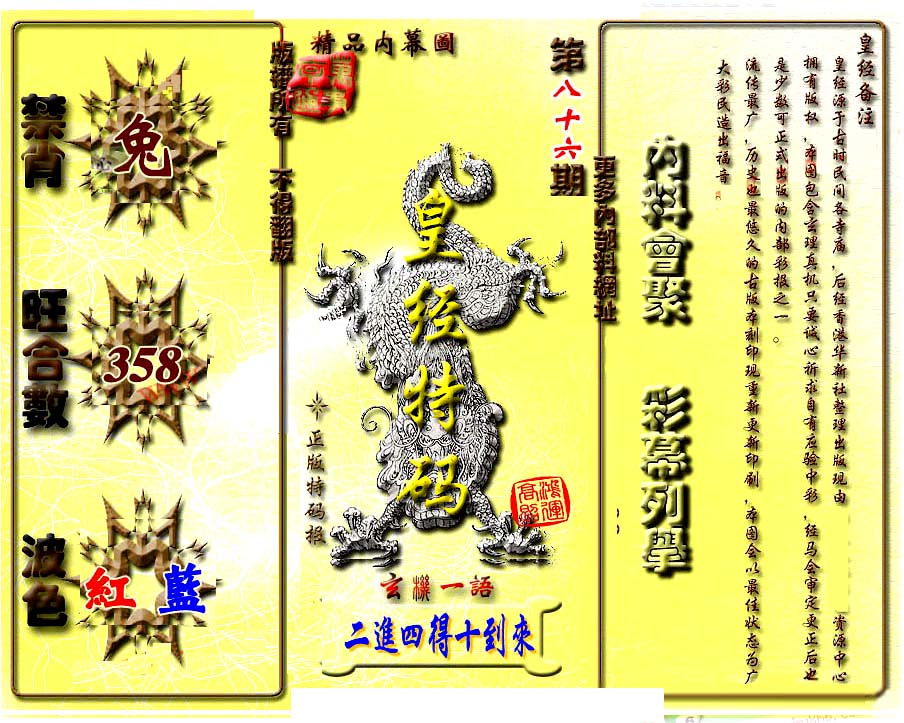 皇经备注
皇经源于古时民间各寺庙，后经香港华新社整理出版现由 资源中心
拥有版权，本图包含玄理真机只要诚心祈求自有应验中彩，经马会审定更正后也
是少数可正式出版的内部彩报之一。
流传最广，历史也最悠久的古版本刻印现重新更新印刷，本图会以最佳状态为广
大彩民造出福音
內料會聚 彩幕列舉
更多內部料網址
第八十六期
精品内幕圖
皇经特码
正版特码报
鴻運
高照
玄機一語
二進四得十到來
版權所有 不得翻版
禁肖
兔
旺合數
358
波色
紅 藍